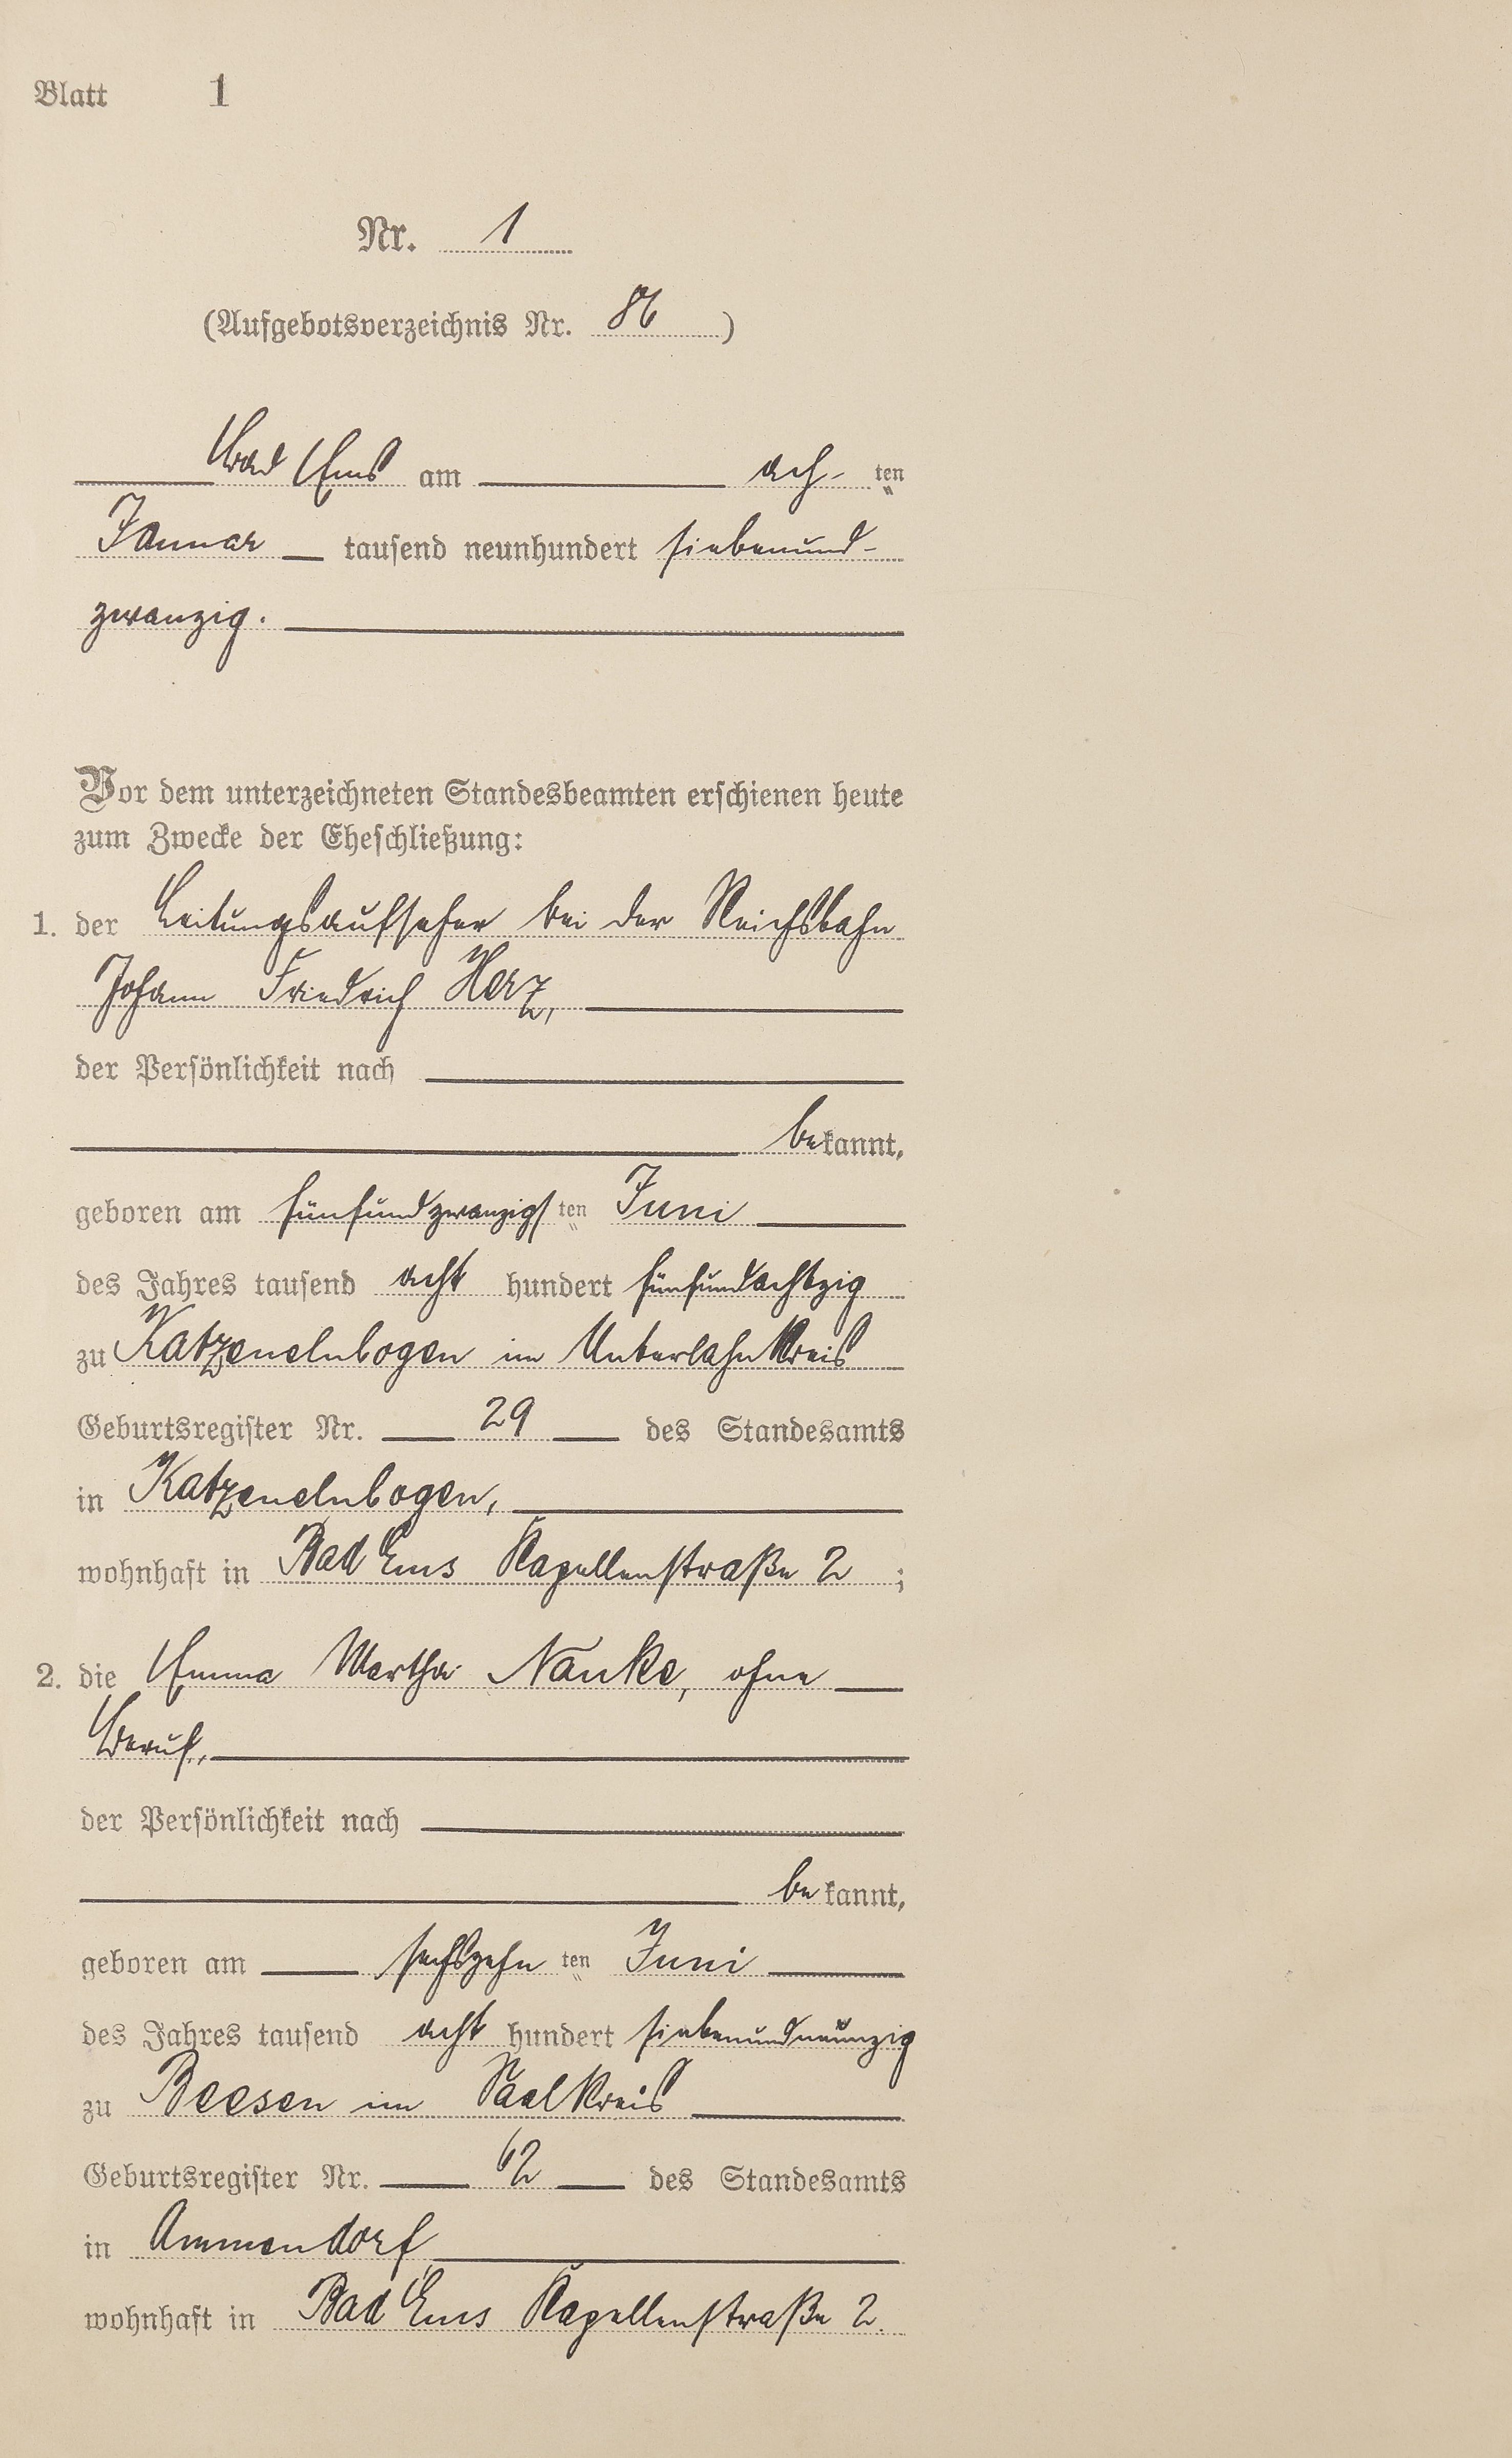 Blatt 1
Nr. 1
(Aufgebotsverzeichnis Nr. 86)
Bad Ems am ach- ten
Januar tausend neunhundert siebenund-
zwanzig.
Vor dem unterzeichneten Standesbeamten erschienen heute
zum Zwecke der Eheschließung:
1. der Leitungsaufseher bei der Reichsbahn
Johann Friedrich Herz,
der Persönlichkeit nach
bekannt,
geboren am fünfundzwanzigsten Juni
des Jahres tausend acht hundert fünfundachtzig
zu Katzenelnbogen im Unterlahnkreis
Geburtsregister Nr. 29 des Standesamts
in Katzenelnbogen,
wohnhaft in Bad Ems Kapellenstraße 2 ;
2. die Emma Martha Nanke, ohne
Beruf,
der Persönlichkeit nach
bekannt,
geboren am sechszehn ten Juni
des Jahres tausend acht hundert siebenundneunzig
zu Beesen im Saalkreis
Geburtsregister Nr. 62 des Standesamts
in Ammendorf,
wohnhaft in Bad Ems Kapellenstraße 2.